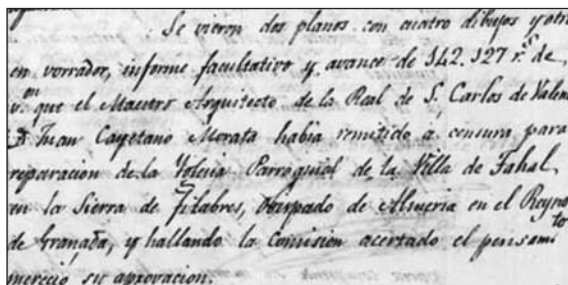 Se vieron dos planos con cuatro dibujos y otro
en vorrador, informe facultativo y avance de 342.327 r.s de
v.on que el Maestro Arquitecto de la Real de S. Carlos de Valen
D. Juan Cayetano Morata habia remitido á censura para
reparacion de la Yglesia Parroquial de la Villa de Tahal,
en la Sierra de Filabres, Obispado de Almeria en el Reyno
de Granada, y hallando la Comision acertado el pensam.to
mereció su aprovacion.